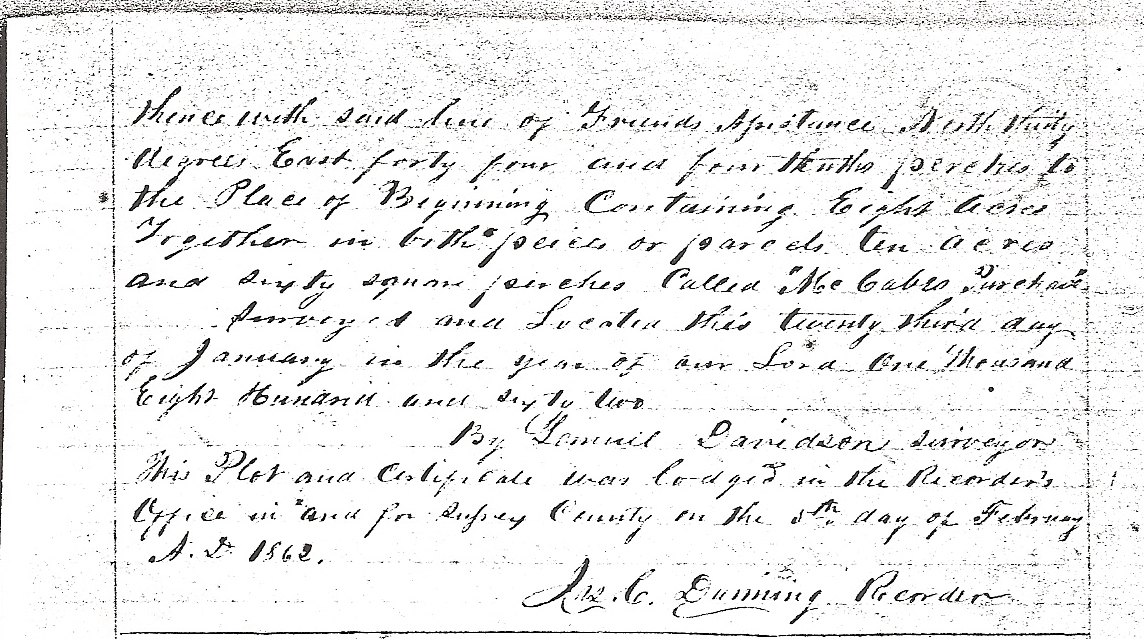 thence with said line of Friends Assistance North thirty
degrees East forty four and four tenths perches to
the Place of Beginning Containing Eight Acres
Together in both peices or parcels ten acres
and sixty square perches Called "McCabes Purchase"
Surveyed and Located this twenty third day
of January in the year of our Lord One Thousand
Eight Hundred and sixty two
By Lemuel Davidson surveyor
This Plot and Certificate was lodged in the Recorder's
Office in and for Sussex County on the 5th day of February
A.D. 1862.
Jas. C. Dunning Recorder